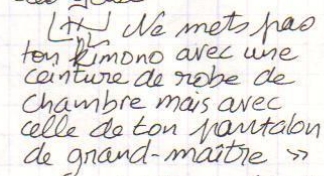 Ne mets pas
ton kimono avec une
ceinture de robe de
chambre mais avec
celle de ton pantalon
de grand-maître »